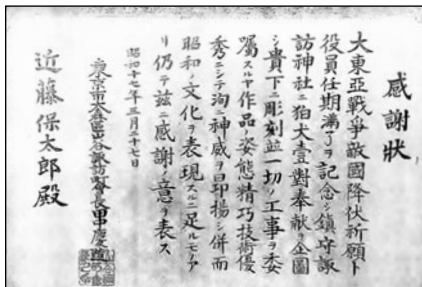 感謝狀
大東亞戰爭敵國降伏祈願ト
役員任期滿了ヲ記念シ鎮守諏
訪神社ニ狛犬壹對奉獻ヲ企圖
シ貴下ニ彫刻並一切ノ工事ヲ委
囑スルヤ作品ノ姿態精巧技術優
秀ニシテ洵ニ神威ヲ昂揚シ併而
昭和ノ文化ヲ表現スルニ足ルモノア
リ仍テ茲ニ感謝ノ意ヲ表ス
昭和十七年三月二十七日
東京市大森區
近藤保太郎殿